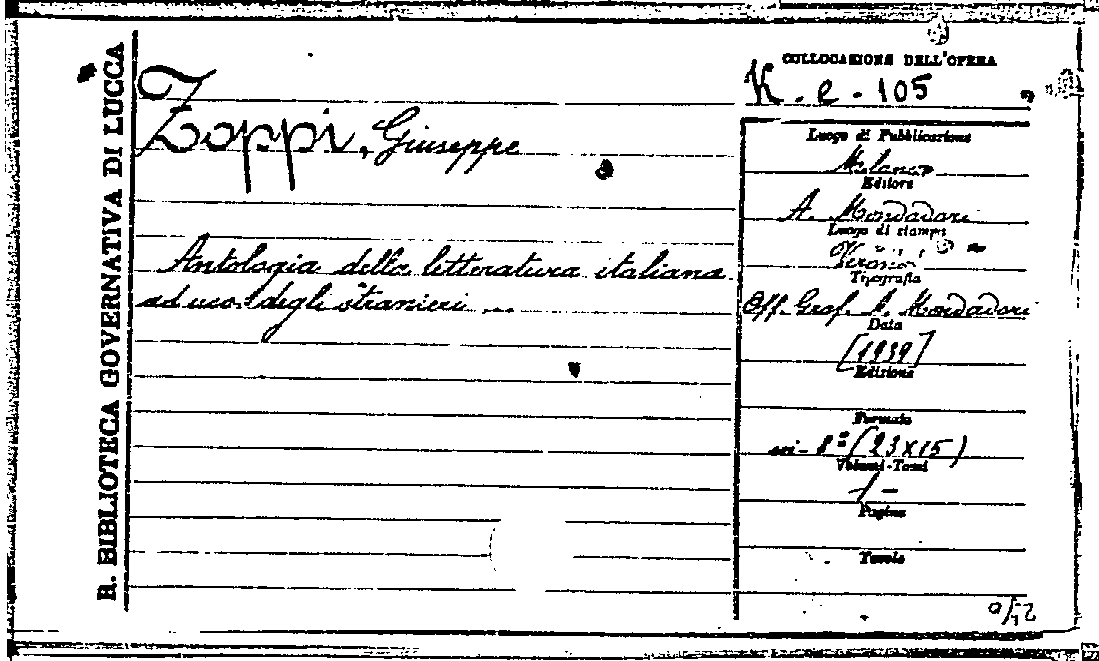 R. BIBLIOTECA GOVERNATIVA DI LUCCA
Zoppi, Giuseppe
Antologia della letteratura italiana
ad uso degli stranieri ...
COLLOCAZIONE DELL'OPERA
K. e. 105
Luogo di Pubblicazione
Milano
Editore
A. Mondadori
Luogo di stampa
Verona
Tipografia
Off. Graf. A. Mondadori
Data
[1939]
Edizione
Formato
in-8º (23x15)
Volumi-Tomi
1 -
Pagine
Tavole